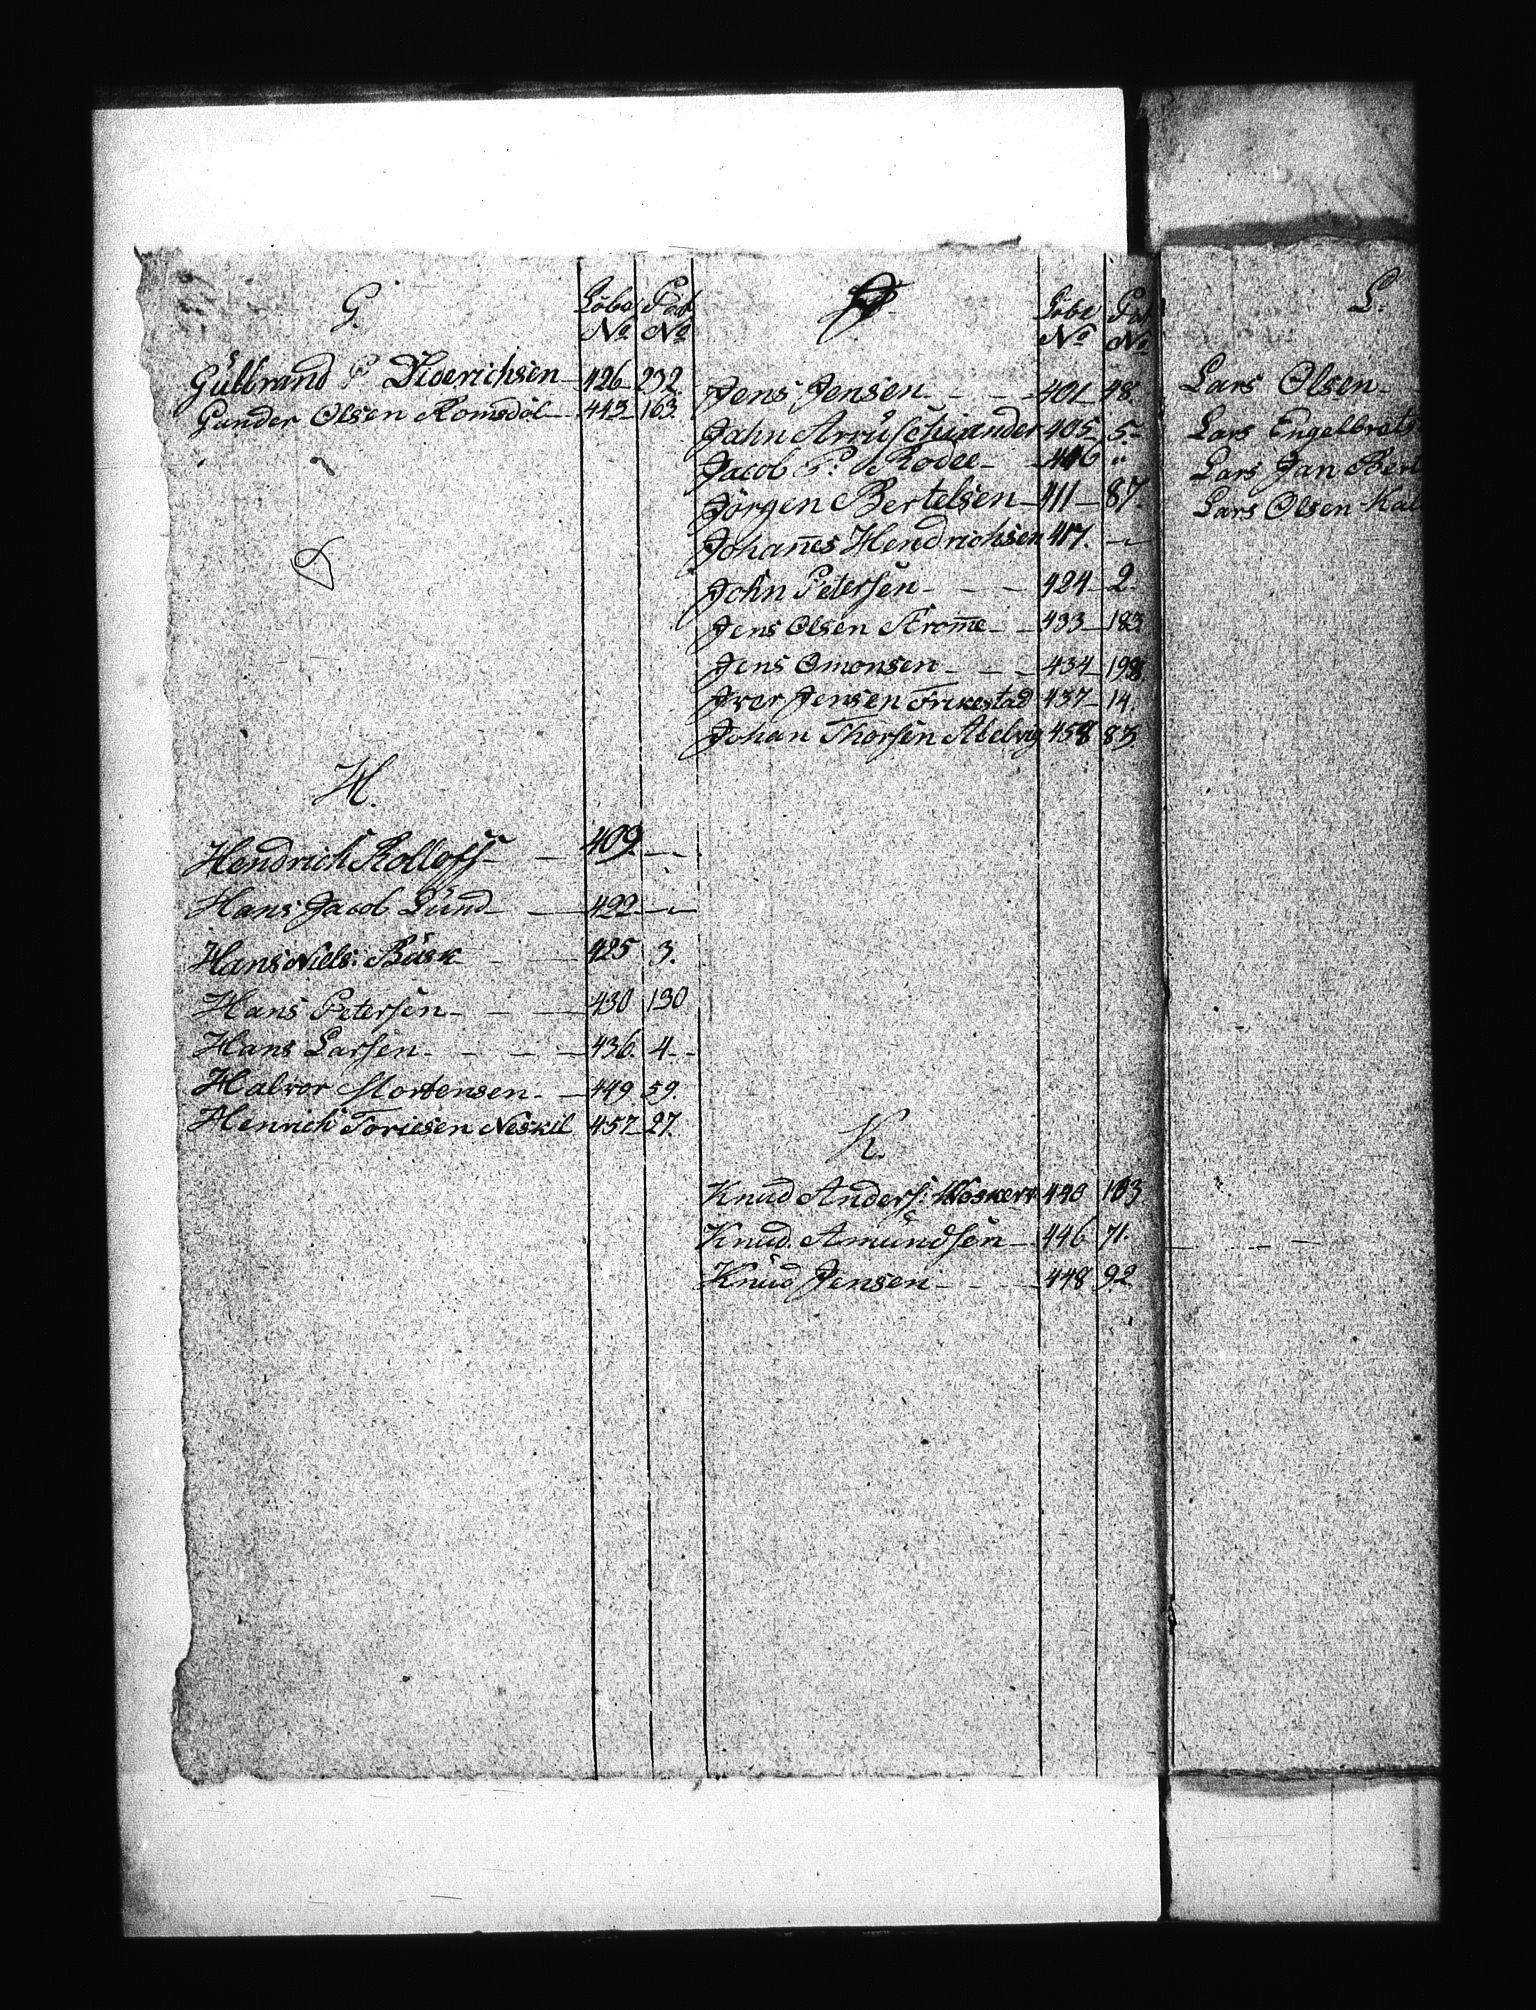 G.
Löbe Pat
No No
Gülbrand P Diderichsen 426 232
Gunder Olsen Romsdal 443 163
H.
Hendrich Rolloff 409
Hans Jacob Lund 422
Hans Niels: Busk 425 3.
Hans Petersen 430 130
Hans Larsen 436. 4
Halvor Mortensen 449 59.
Henrich Toriesen Neskil 457 27.
J.
Löbe Pat
No No
Jens Jensen 401 48.
Jahn 405 5
Jacob P: Rodee 406 "
Jörgen Bertelsen 411 87.
Johan̄es Hendrichsen 417.
John Petersen 424 2
Jens Olsen Krom̄e 433 183
Jens Omonsen 434 198
Iver Jensen Frikestad 437 14.
Johan Thorsen Abelvig 458 83
K.
Knud Anders: 440 103
Knud. Amundsen 446 71.
Knud Jensen 448 92
L.
Lars Olsen
Lars Engelbrets
Lars Jan Bert
Lars Olsen Kal